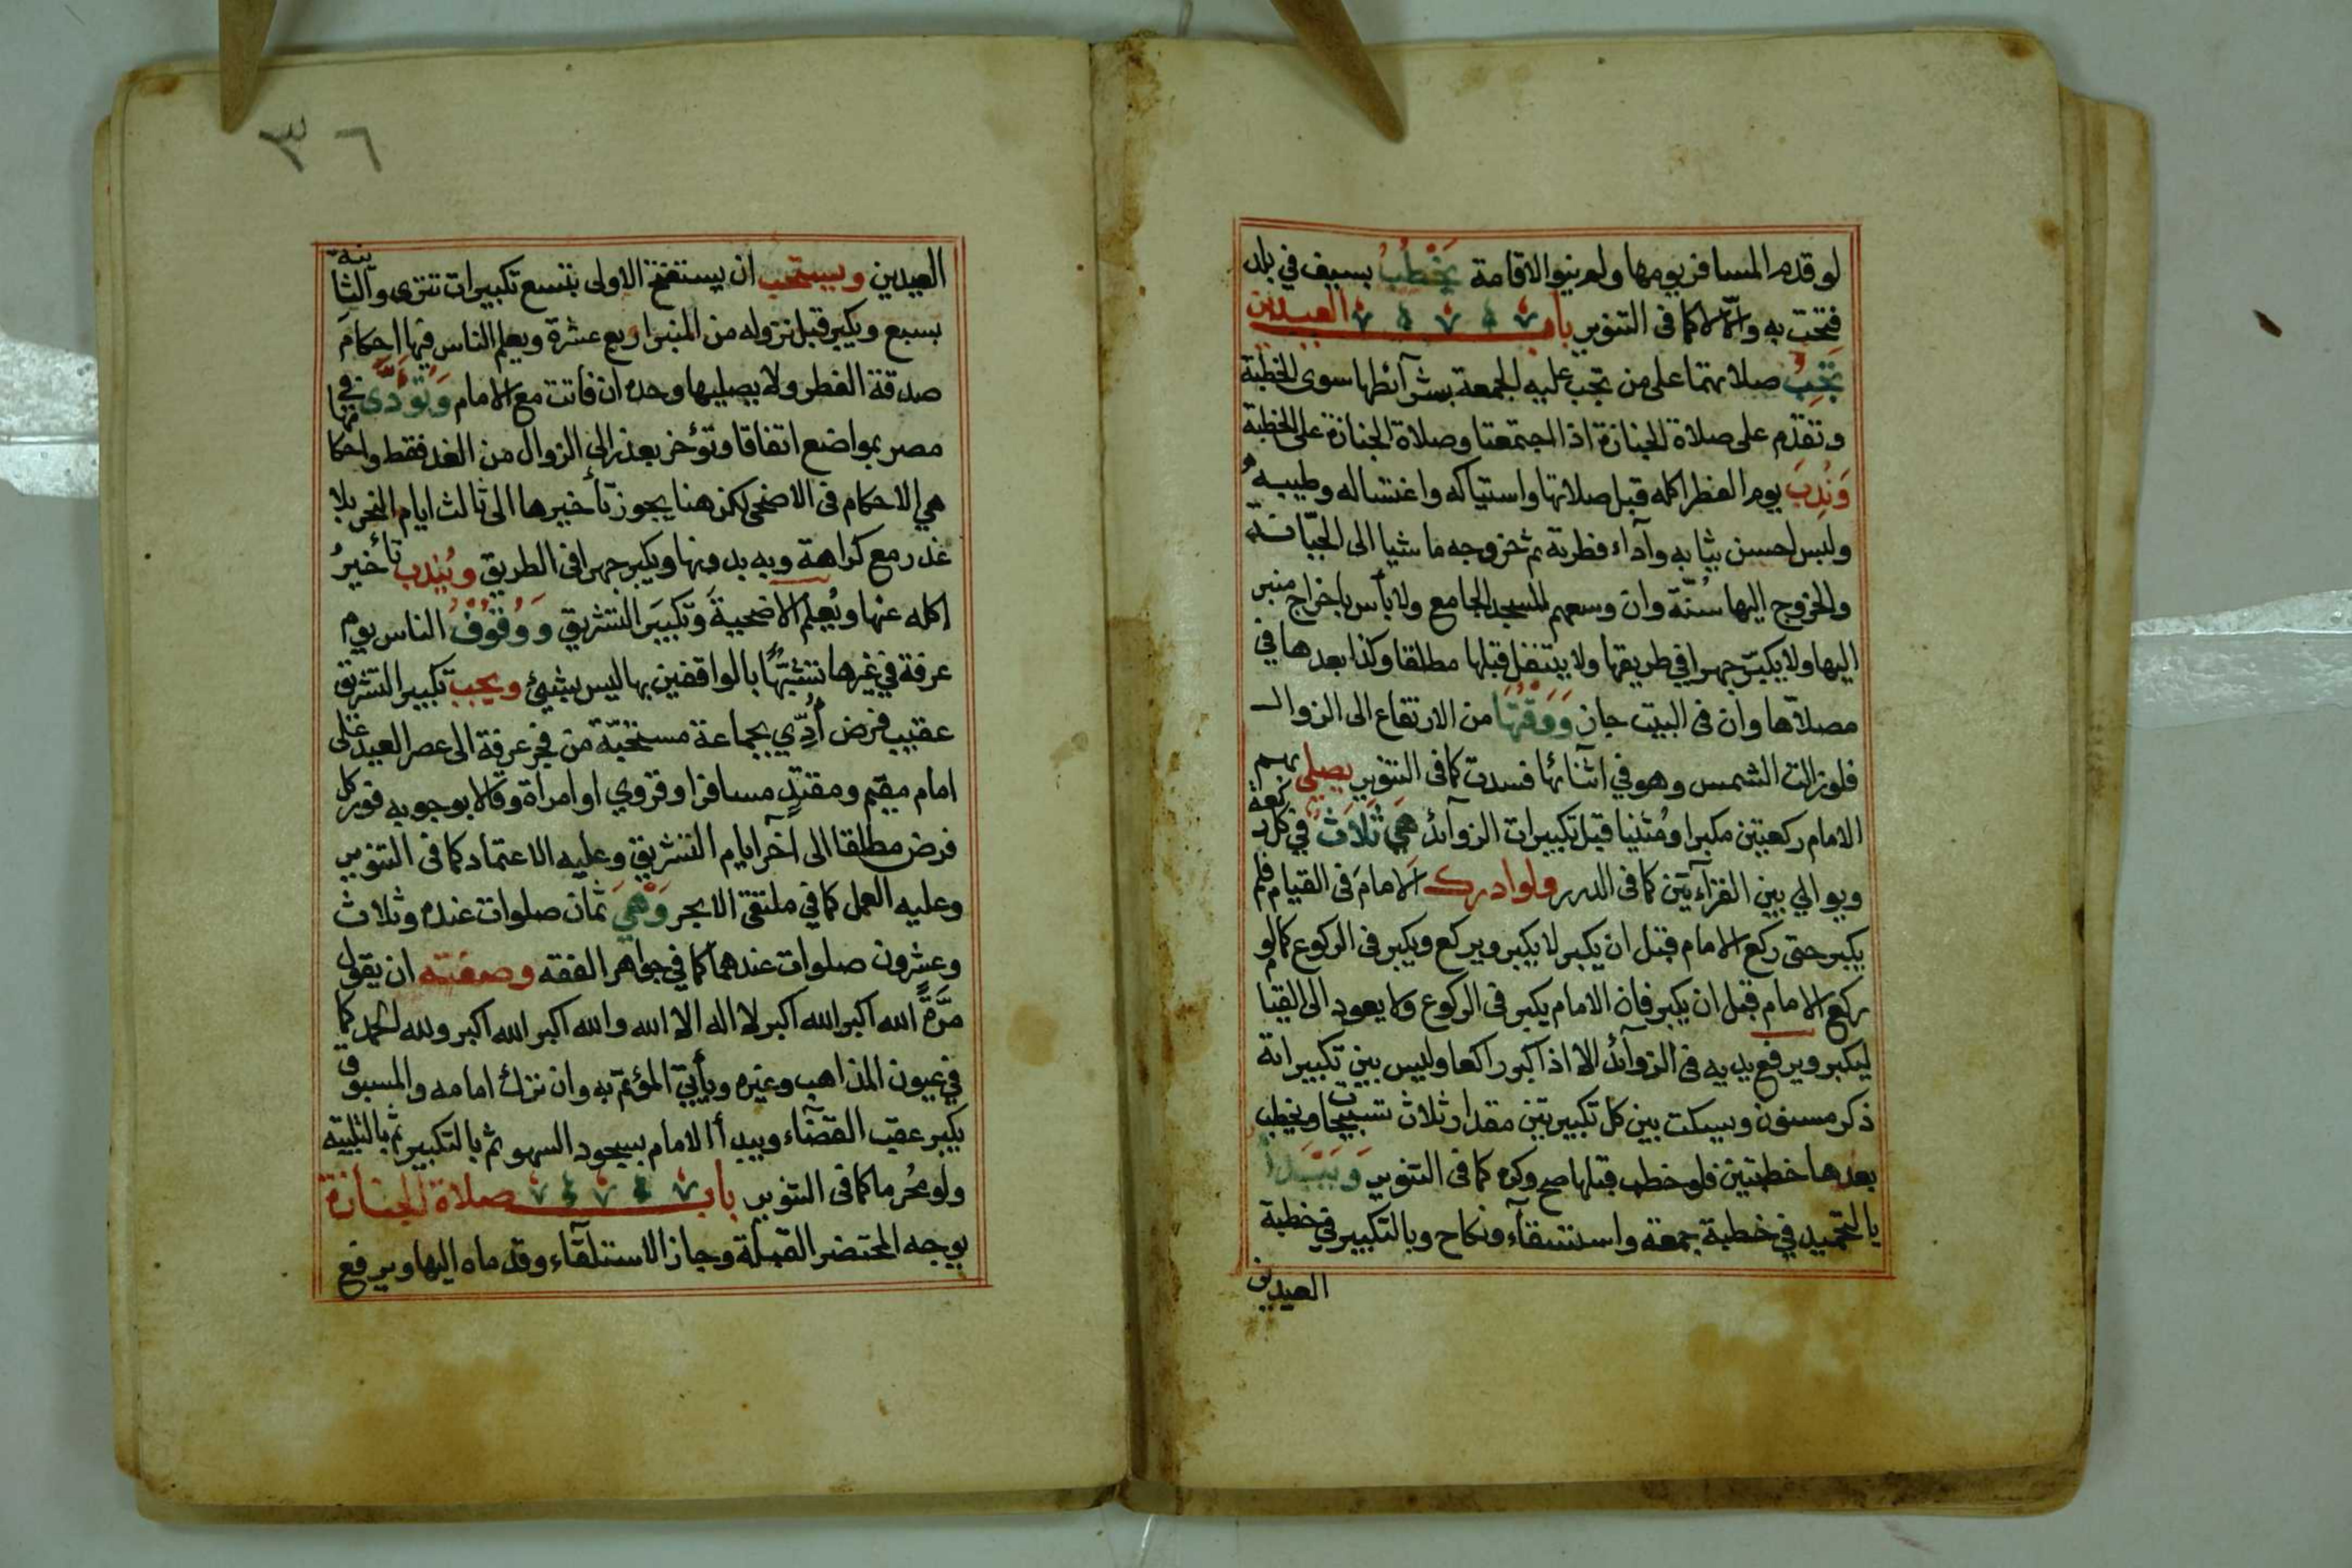 لو قدم المسافر يومها ولم ينو الاقامة يَخْطُبُ بسيف في بلد
فتحت به والّا لا كما فى التنوير باب العيدين
تَجِبُ صلاتهما على من تجب عليه الجمعة بشرآئطها سوى الخطبة
وتقدّم على صلاة الجنازة اذا اجتمعتا وصلاة الجنازة على الخطبة
وَنُدِبَ يوم الفطر اكله قبل صلاتها واستياكه واغتساله وطيبه
ولبس احسن ثيابه وآداء فطرته ثم خروجه ماشيا الى الجبّانة
والخروج اليها سُنّة وان وسعهم المسجد الجامع ولا بأس باخراج منبر
اليها ولا يكبّر جهرا في طريقها ولا يتنفل قبلها مطلقا وكذا بعدها في
مصلاها وان فى البيت جاز وَوَقْتُهَا من الارتفاع الى الزوال
فلو زالت الشمس وهو في اثنائها فسدت كما فى التنوير يصلي بهم
الامام ركعتين مكبرا ومُثنيا قبل تكبيرات الزوآئد هي ثَلَاثٌ في كل ركعة
ويوالي بين القرآءتين كما فى الدرر ولو ادرك الامامَ فى القيام فلم
يكبر حتى ركع الامام قبل ان يكبر لا يكبر ويركع ويكبر فى الركوع كما لو
ركع الامام قبل ان يكبر فان الامام يكبر فى الركوع ولا يعود الى القيام
ليكبر ويرفع يديه فى الزوآئد الا اذا كبر راكعا وليس بين تكبيراته
ذكر مسنون ويسكت بين كل تكبيرتين مقدار ثلاث تسبيحات ويخطب
بعدها خطبتين فلو خطب قبلها صح وكره كما فى التنوير وَيَبْدَأُ
بالتحميد في خطبة جمعة واستسقآء ونكاح وبالتكبير في خطبة
العيدين
٣٦
العيدين ويستحب ان يستفتح الاولى بتسع تكبيرات تترى والثانية
بسبع ويكبر قبل نزوله من المنبر اربع عشرة ويعلم الناس فيها احكامَ
صدقة الفطر ولا يصليها وحده ان فاتت مع الامام وَتُؤَدَّى في
مصر بمواضع اتفاقا وتؤخر بعذر الى الزوال من الغد فقط واحكامها
هي الاحكام فى الاضحى لكن هنا يجوز تأخيرها الى ثالث ايام النحر بلا
عذر مع كراهة وبه بدونها ويكبر جهرا فى الطريق ويُندب تأخيرُ
اكله عنها ويُعلم الاضحيةَ وَتكبيرَ التشريق وَوُقُوفُ الناس يوم
عرفة في غيرها تشبّهًا بالواقفين بها ليس بشيئ ويجب تكبير التشريق
عقيب فرض اُدِّي بجماعة مستحبّة من فجر عرفة الى عصر العيد على
امام مقيم ومقتدٍ مسافر او قروي او امراة وقالا بوجوبه فور كل
فرض مطلقا الى آخر ايام التشريق وعليه الاعتماد كما فى التنوير
وعليه العمل كما في ملتقى الابحر وَهْيَ ثمان صلوات عنده وثلاث
وعشرون صلوات عندهما كما في جواهر الفقه وصفته ان يقول
مرَّةً الله اكبر الله اكبر لا اله الا الله والله اكبر الله اكبر ولله الحمد كما
في عيون المذاهب وغيره ويأتيّ المؤتمّ به وان ترك امامه والمسبوق
يكبر عقب القضآء ويبدأ الامام بسجود السهو ثم بالتكبير ثم بالتلبية
ولو مُحرما كما فى التنوير باب صلاة الجنازة
يوجه المحتضر القبلة وجاز الاستلقآء وقدماه اليها ويرفع